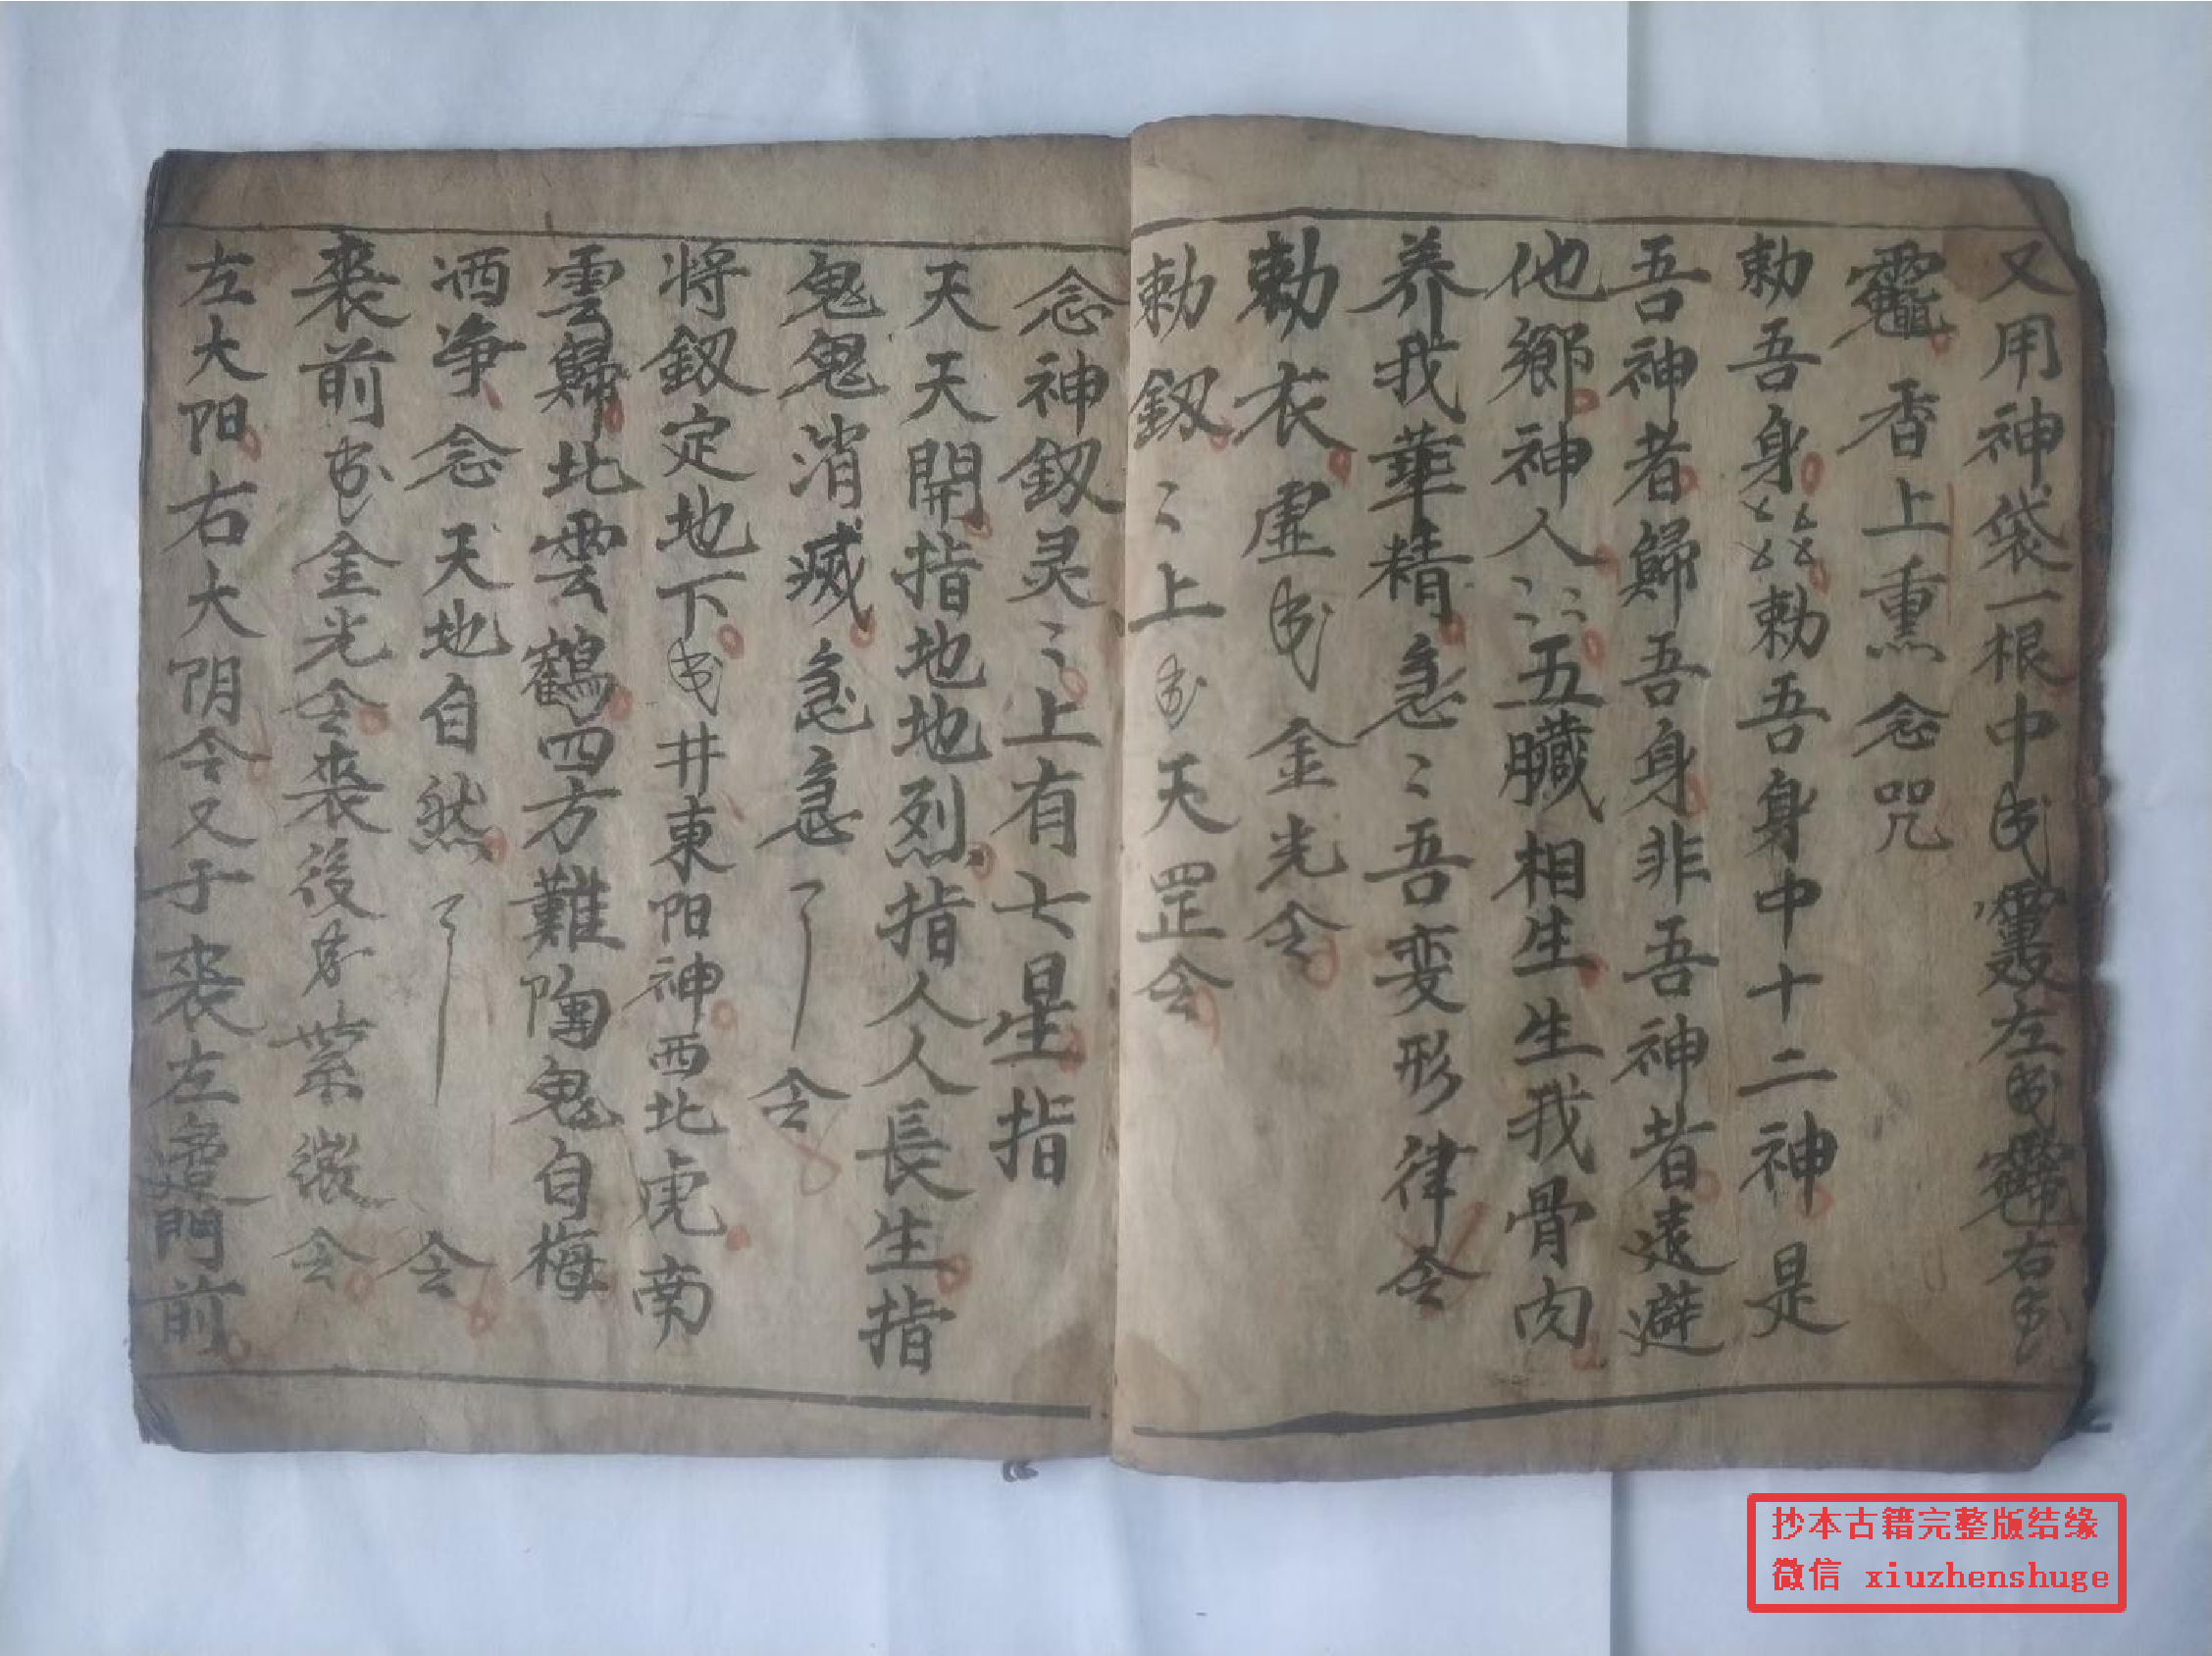 又用神袋一根中左右
香上熏念咒
勅吾身〻〻勅吾身中十二神是
吾神者歸吾身非吾神者遠避
他鄉神人〻〻五臟相生生我骨肉
养我華精急〻吾变形律令
勅衣虚金光令
勅釼〻上天罡令
念神釼灵〻上有七星指
天天開指地地烈指人人長生指
鬼鬼消滅急急令
将釼定地下井東阳神西北虎南
雲歸北雲鶴四方難陶鬼自梅
洒净念天地自然令
裘前金光令裘後紫微令
左大阳右大阴令又于裘左邊門前
抄本古籍完整版结缘
微信 xiuzhenshuge